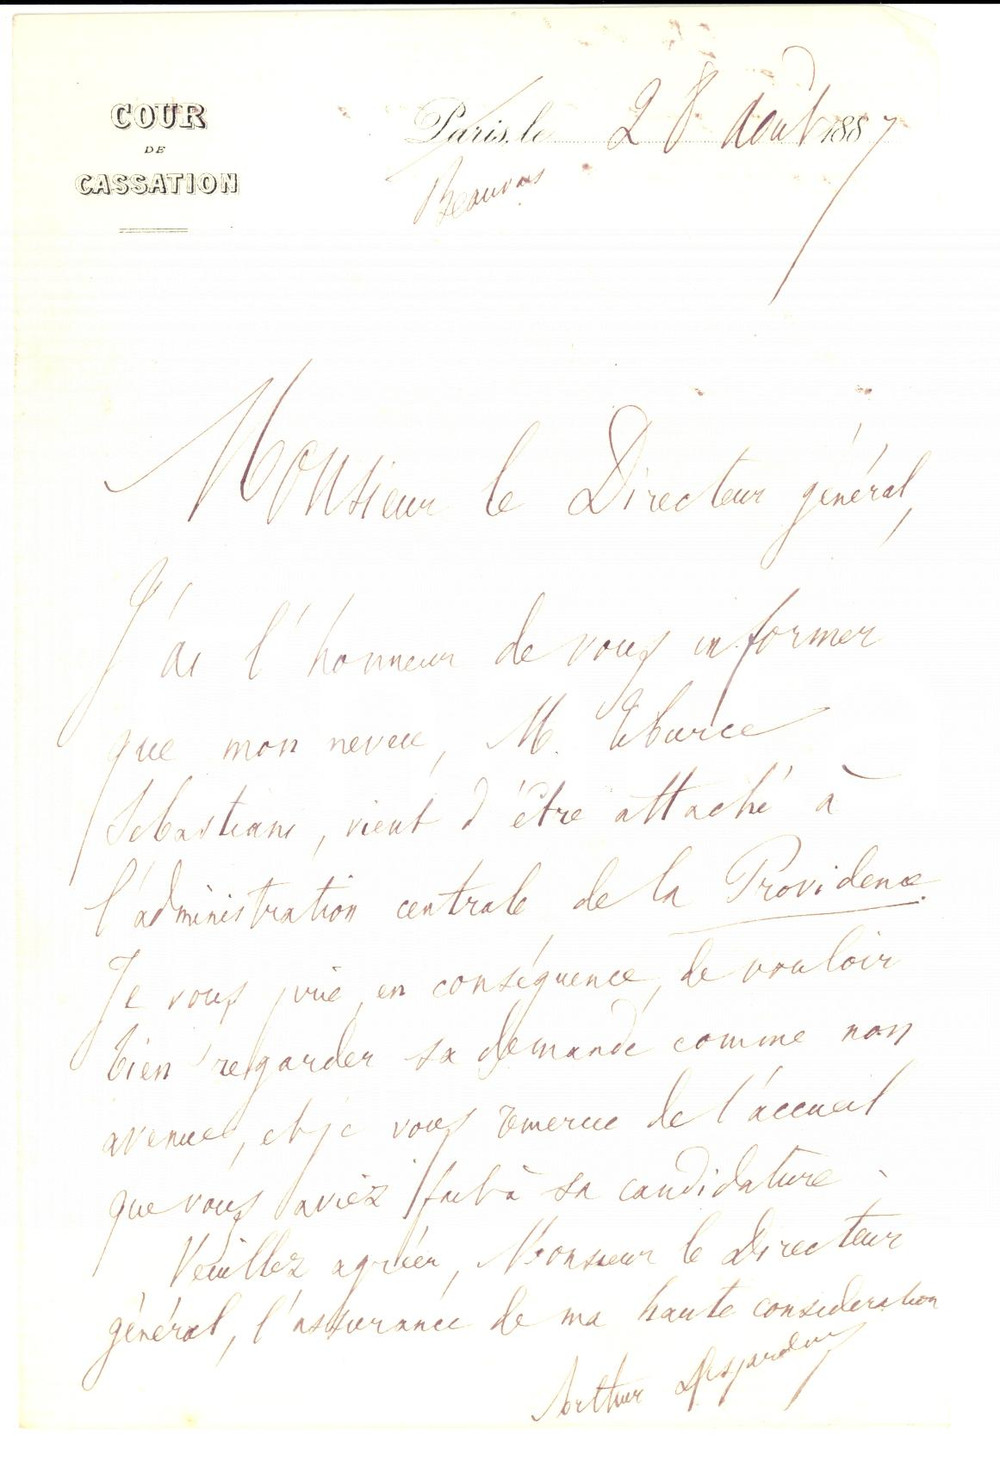 COUR
DE
CASSATION
Paris, le 28 août 1887
Beauvais
Monsieur le Directeur général,
J'ai l'honneur de vous informer
que mon neveu, M. Tiburce
Sébastiani, vient d'être attaché à
l'administration centrale de la Providence.
Je vous prie, en conséquence, de vouloir
bien regarder sa demande comme non
avenue, et je vous remercie de l'accueil
que vous aviez fait à sa candidature.
Veuillez agréer, Monsieur le Directeur
général, l'assurance de ma haute considération
Arthur Desjardins